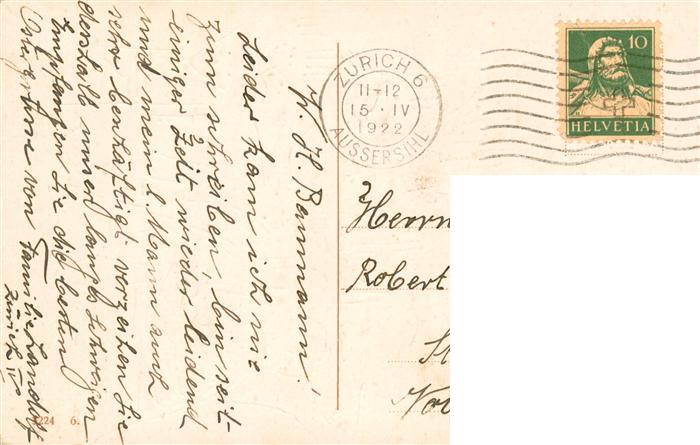 W. H. Baumann!
Leider kam ich nie
zum schreiben, bin seit-
einiger Zeit wieder leidend
und mein l. Mann auch
sehr beschäftigt verzeihen Sie
deshalb unser langes schweigen
Empfangen Sie die besten
von Familie Landolf
Zürich IV
ZÜRICH 6
11-12
15. IV
1922
AUSSERSIHL
10
HELVETIA
Herrn
Robert
224 6.